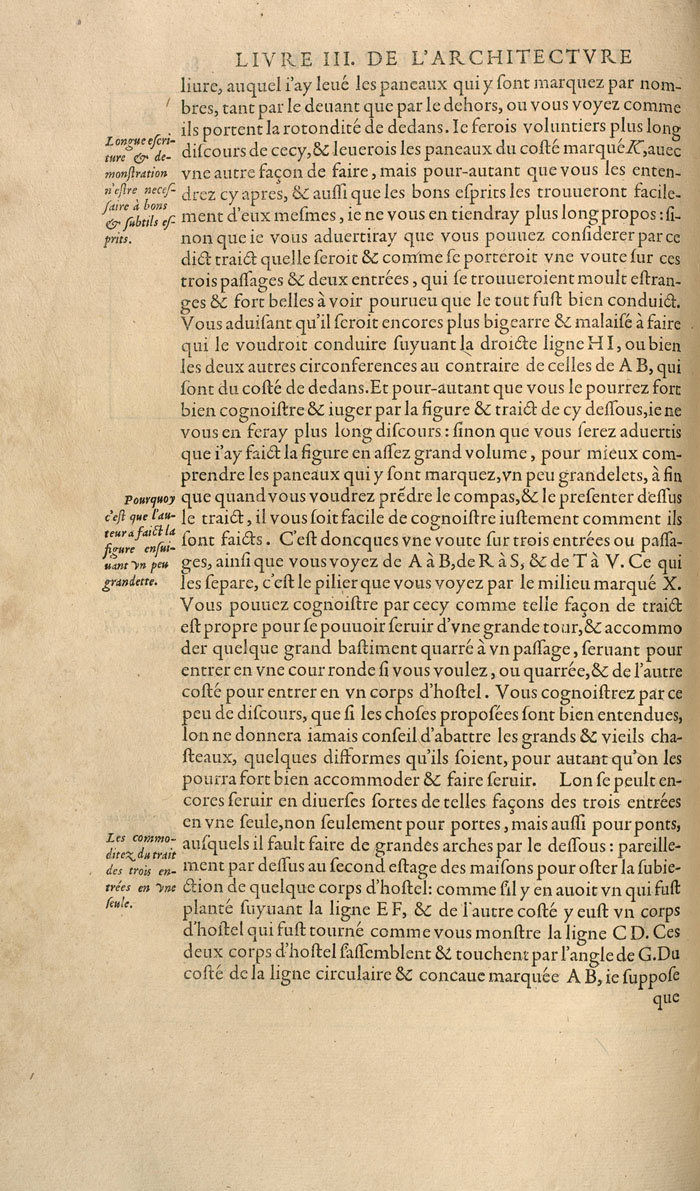 LIVRE III. DE L'ARCHITECTVRE
liure, auquel i'ay leué les paneaux qui y ſont marquez par nom-
bres, tant par le deuant que par le dehors, ou vous voyez comme
ils portent la rotondité de dedans. Ie ferois voluntiers plus long
diſcours de cecy, & leuerois les paneaux du coſté marqué K, auec
vne autre façon de faire, mais pour-autant que vous les enten-
drez cy apres, & auſſi que les bons eſprits les trouueront facile-
ment d'eux meſmes, ie ne vous en tiendray plus long propos: ſi-
non que ie vous aduertiray que vous pouuez conſiderer par ce
dict traict quelle ſeroit & comme ſe porteroit vne voute ſur ces
trois paſſages & deux entrées, qui ſe trouueroient moult eſtran-
ges & fort belles à voir pourueu que le tout fuſt bien conduict.
Vous aduiſant qu'il ſeroit encores plus bigearre & malaiſé à faire
qui le voudroit conduire ſuyuant la droicte ligne H I, ou bien
les deux autres circonferences au contraire de celles de A B, qui
ſont du coſté de dedans. Et pour-autant que vous le pourrez fort
bien cognoiſtre & iuger par la figure & traict de cy deſſous, ie ne
vous en feray plus long diſcours: ſinon que vous ſerez aduertis
que i'ay faict la figure en aſſez grand volume, pour mieux com-
prendre les paneaux qui y ſont marquez, vn peu grandelets, à fin
que quand vous voudrez prēdre le compas, & le preſenter deſſus
le traict, il vous ſoit facile de cognoiſtre iuſtement comment ils
ſont faicts. C'eſt doncques vne voute ſur trois entrées ou paſſa-
ges, ainſi que vous voyez de A à B, de R à S, & de T à V. Ce qui
les ſepare, c'eſt le pilier que vous voyez par le milieu marqué X.
Vous pouuez cognoiſtre par cecy comme telle façon de traict
eſt propre pour ſe pouuoir ſeruir d'vne grande tour, & accommo
der quelque grand baſtiment quarré à vn paſſage, ſeruant pour
entrer en vne cour ronde ſi vous voulez, ou quarrée, & de l'autre
coſté pour entrer en vn corps d'hoſtel. Vous cognoiſtrez par ce
peu de diſcours, que ſi les choſes propoſées ſont bien entendues,
lon ne donnera iamais conſeil d'abattre les grands & vieils cha-
ſteaux, quelques difformes qu'ils ſoient, pour autant qu'on les
pourra fort bien accommoder & faire ſeruir. Lon ſe peult en-
cores ſeruir en diuerſes ſortes de telles façons des trois entrées
en vne ſeule, non ſeulement pour portes, mais auſſi pour ponts,
auſquels il fault faire de grandes arches par le deſſous: pareille-
ment par deſſus au ſecond eſtage des maiſons pour oſter la ſubie-
ction de quelque corps d'hoſtel: comme ſil y en auoit vn qui fuſt
planté ſuyuant la ligne E F, & de l'autre coſté y euſt vn corps
d'hoſtel qui fuſt tourné comme vous monſtre la ligne C D. Ces
deux corps d'hoſtel ſaſſemblent & touchent par l'angle de G. Du
coſté de la ligne circulaire & concaue marquée A B, ie ſuppoſe
que
Longue eſcri-
ture & de-
monſtration
n'eſtre neceſ-
ſaire à bons
& ſubtils eſ-
prits.
Pourquoy
c'eſt que l'au-
teur a faict la
figure enſui-
uant vn peu
grandette.
Les commo-
ditez du trait
des trois en-
trées en vne
ſeule.